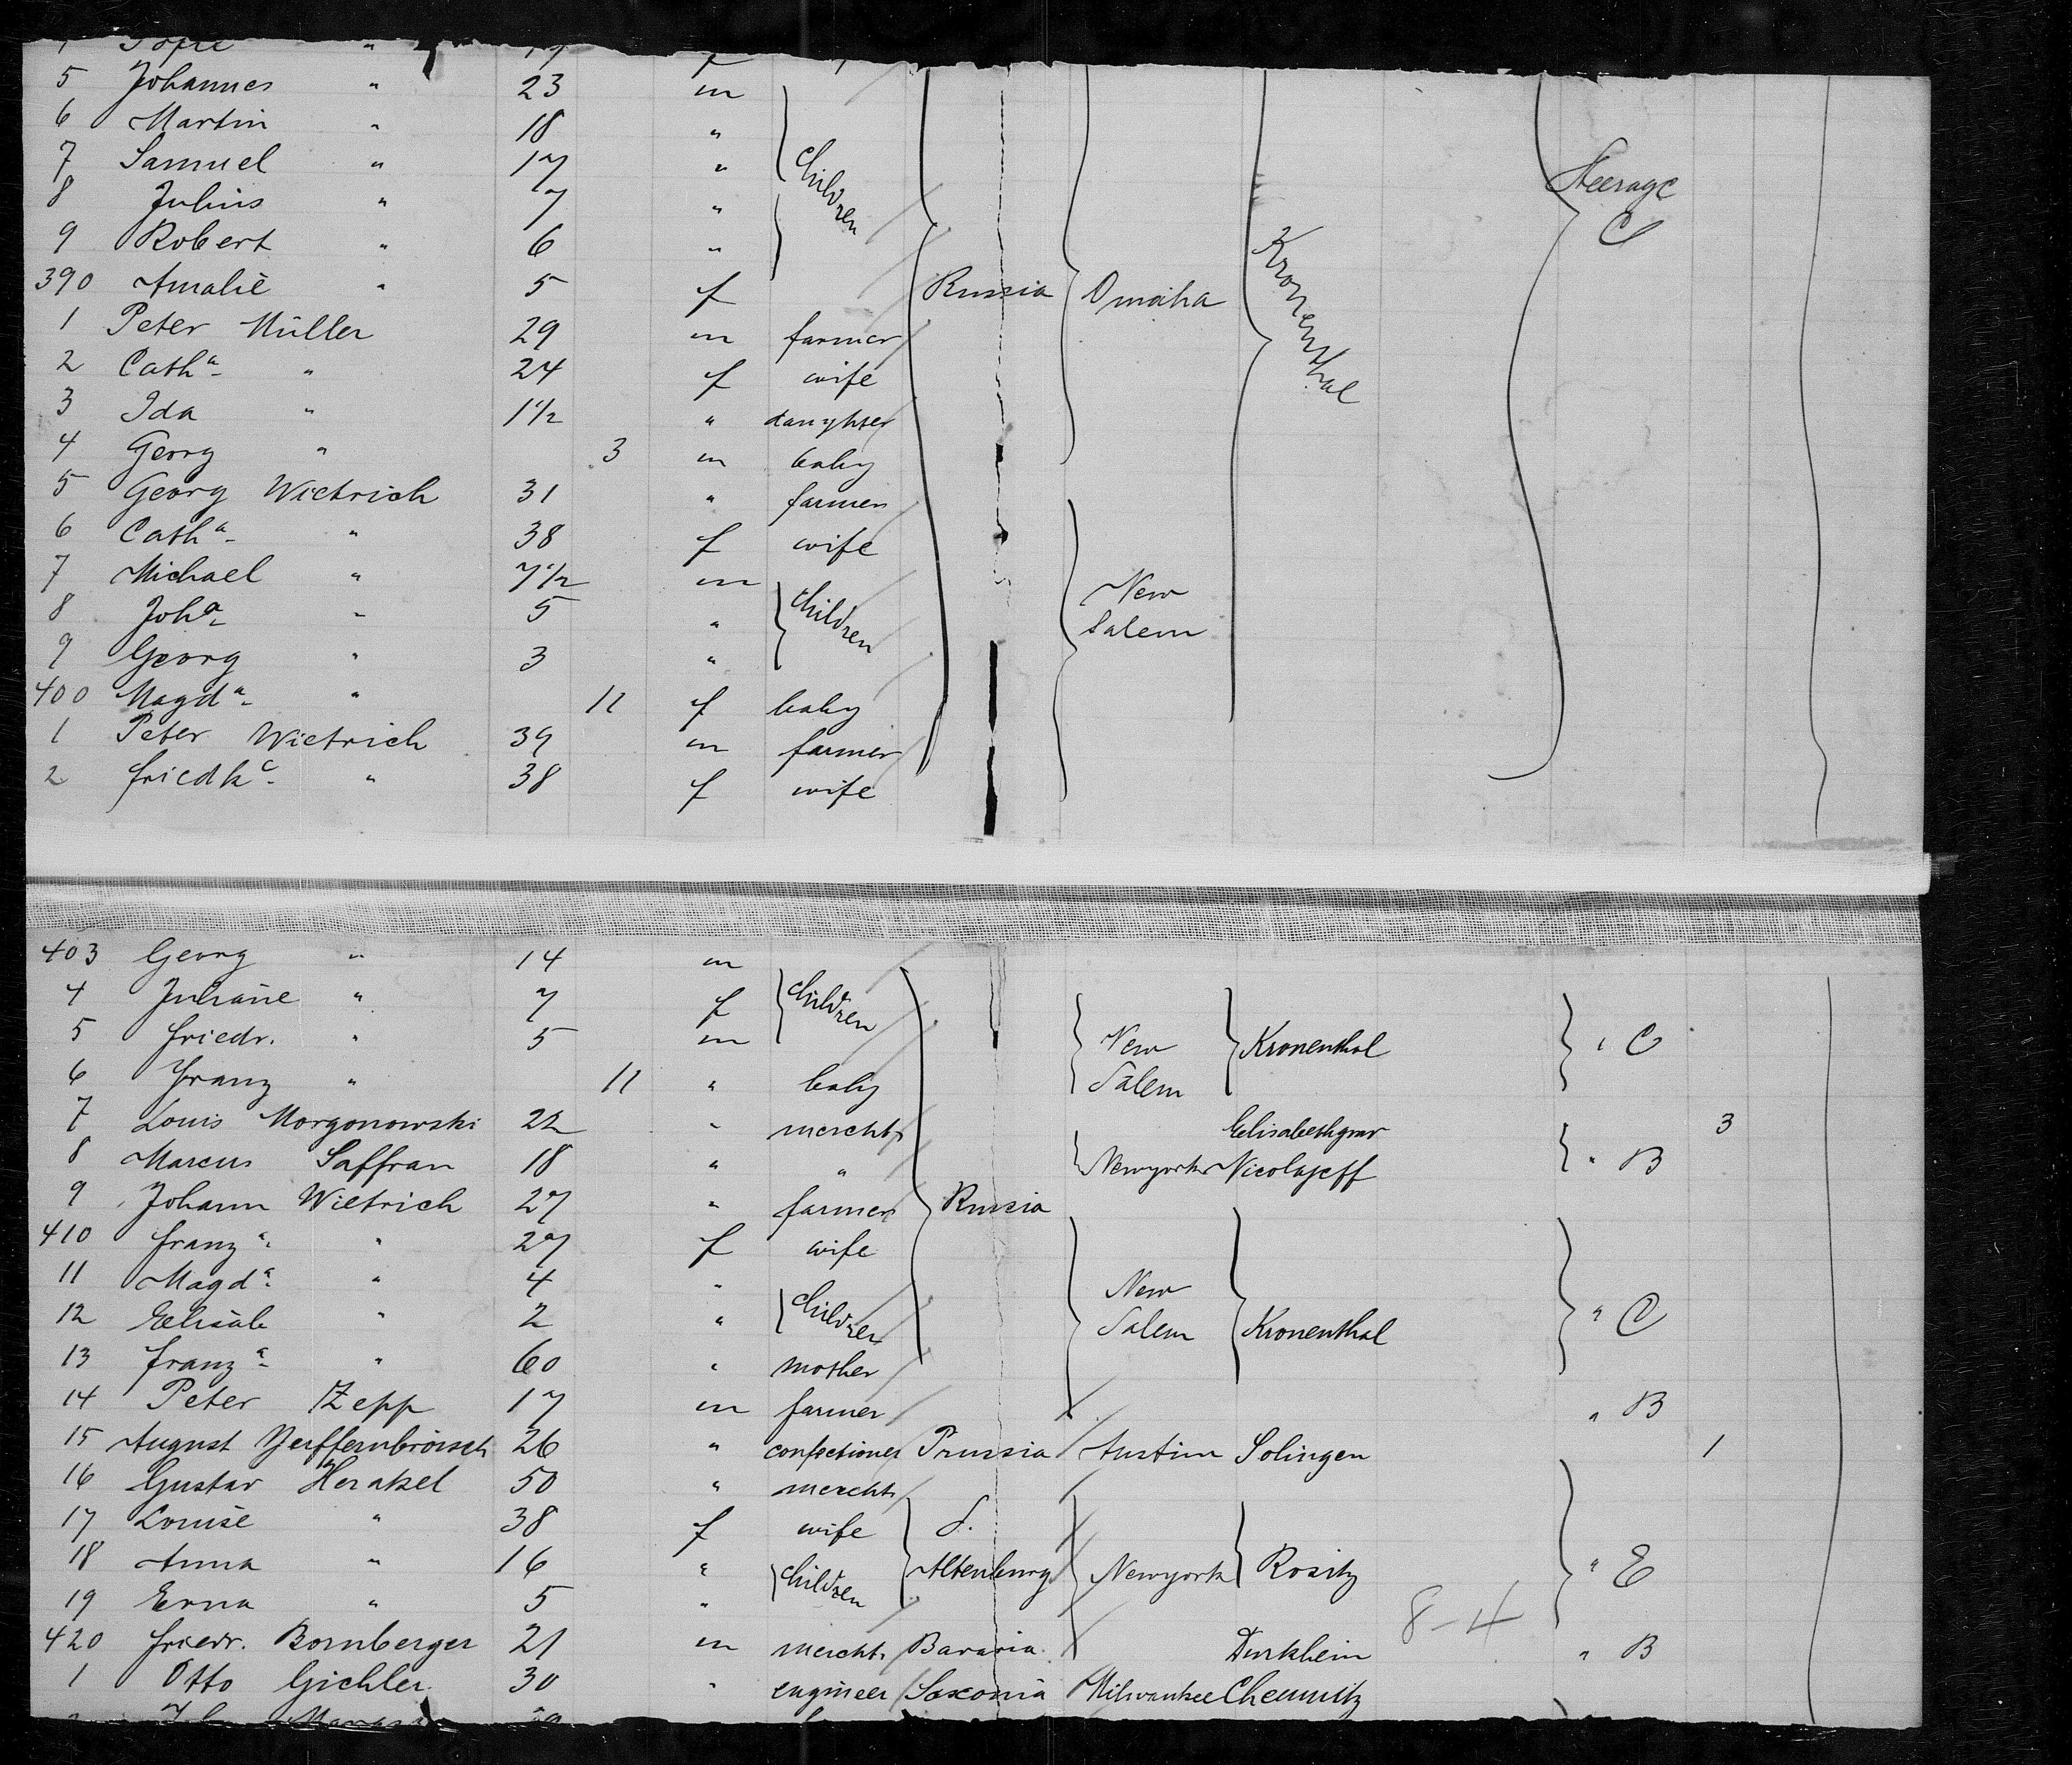 Sofie "
5 Johannes " 23 m
6 Martin " 18 "
7 Samuel " 17 " children
8 Julius " 7 "
9 Robert " 6 "
390 Amalie " 5 f
Russia Omaha Kronenthal
Steerage C
1 Peter Müller 29 m farmer
2 Cath<sup>a</sup> " 24 f wife
3 Ida " 1 1/2 " daughter
4 Georg " 3 m baby
5 Georg Wietrich 31 " farmer
6 Cath<sup>a</sup> " 38 f wife
7 Michael " 7 1/2 m
8 Joh<sup>a</sup> " 5 " children New
Salem
9 Georg " 3 "
400 Magd<sup>a</sup> " 11 f baby
1 Peter Wietrich 39 m farmer
2 Friedk<sup>e</sup> " 38 f wife
403 Georg " 14 m
4 Juliane " 7 f children
5 Friedr. " 5 m New Kronenthal " C
6 Franz " 11 " baby Salem
7 Louis Morgonowski 22 " mercht. Elisabethgrar 3
8 Marcus Saffran 18 " " Newyork Nicolajeff " B
9 Johann Wietrich 27 " farmer Russia
410 Franz<sup>a</sup> " 27 f wife
11 Magd<sup>a</sup> " 4 " New
12 Elisab " 2 " children Salem Kronenthal " C
13 Franz<sup>a</sup> " 60 " mother
14 Peter Zepp 17 m farmer " B
15 August 26 " confectioner Prussia Austin Solingen 1
16 Gustav 50 " mercht.
17 Louise " 38 f wife S.
18 Anna " 16 " children Altenburg Newyork Rositz " E
19 Erna " 5 " 8-4
420 Friedr. Bornberger 21 m mercht. Bavaria Durkheim " B
1 Otto Gichler 30 " engineer Saxonia Milwaukee Chemnitz